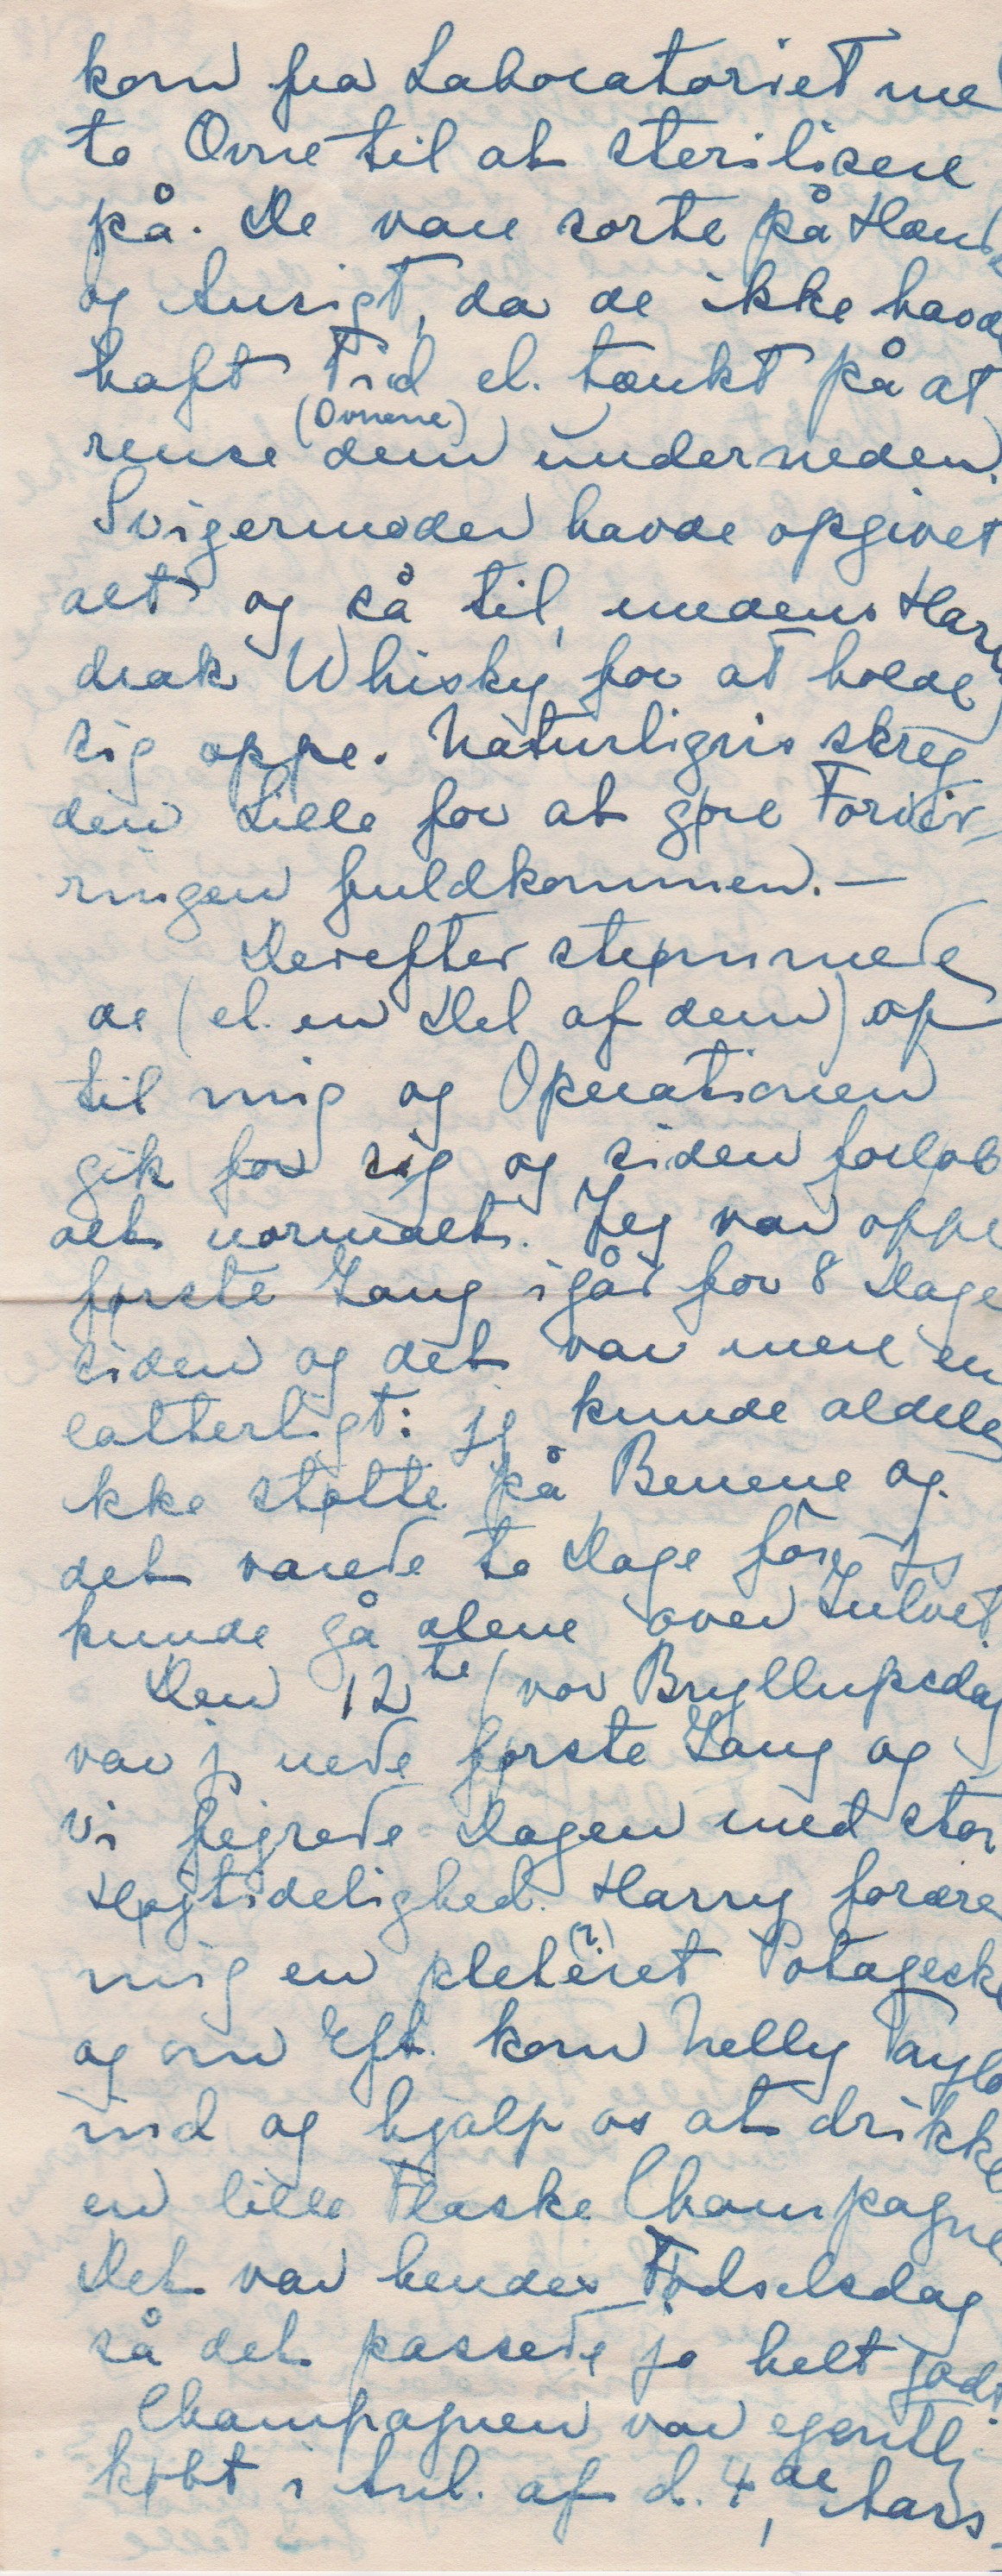 kom fra Laboratoriet me
to Ovne til at sterilisere
på. De vare sorte på Hænd
og Ansigt, da de ikke havde
haft Tid el. tænkt på at
(Ovnene)
rense dem underneden.
Svigermoder havde opgivet
alt og så til, medens Harry
drak Whisky for at holde
sig oppe. Naturligvis skreg
den Lille for at gøre Forvir-
ringen fuldkommen. —
Derefter stemmede
de (el. en Del af dem) op
til mig og Operationen
gik for sig og siden forløb
alt normalt. Jeg var oppe
første Gang igår for 8 Dage
siden og det var mere en
latterligt: jg kunde aldeles
kke støtte på Benene og
det varede to Dage før jg
kunde gå alene over Gulvet.
Den 12te / vor Bryllupsdag
var jg nede første Gang og
vi fejrede Dagen med stor
Højtidelighed. Harry forære
(?)
mig en pletèret Potageske
og om Eft. kom Nelly Taylo
ind og hjalp os at drikke
en lille Flaske Champagne
Det var hendes Fødselsdag
så det passede jo helt godt.
Champagnen var egentlig
købt i Anl. af d. 4de, Lars